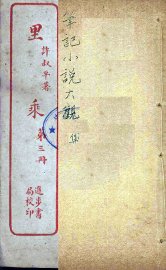 筆記小說大觀
集
許叔平著
里乘
第三冊
進步書
局校印